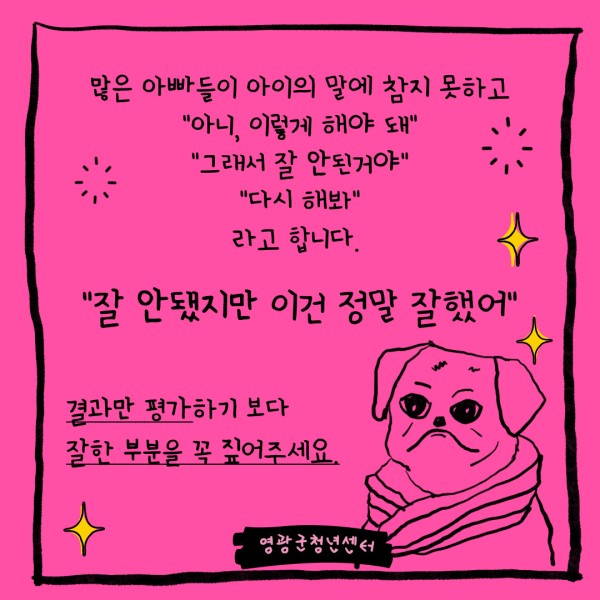 많은 아빠들이 아이의 말에 참지 못하고
"아니, 이렇게 해야 돼"
"그래서 잘 안된거야"
"다시 해봐"
라고 합니다.
"잘 안됐지만 이건 정말 잘했어"
결과만 평가하기 보다
잘한 부분을 꼭 짚어주세요.
영광군청년센터